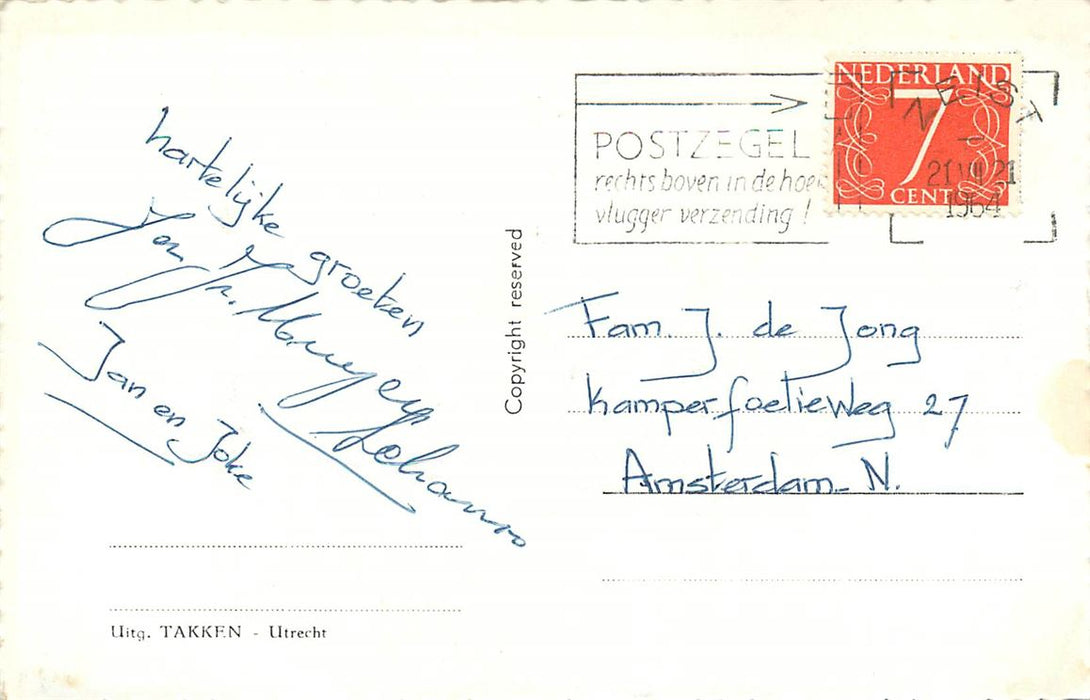 hartelijke groeten
Jan en Joke
Uitg. TAKKEN - Utrecht
Copyright reserved
POSTZEGEL
rechts boven in de hoe
vlugger verzending!
NEDERLAND
7
CENT
ZEIST
21 VII 21
1964
Fam. J. de Jong
Kamperfoelieweg 27
Amsterdam-N.